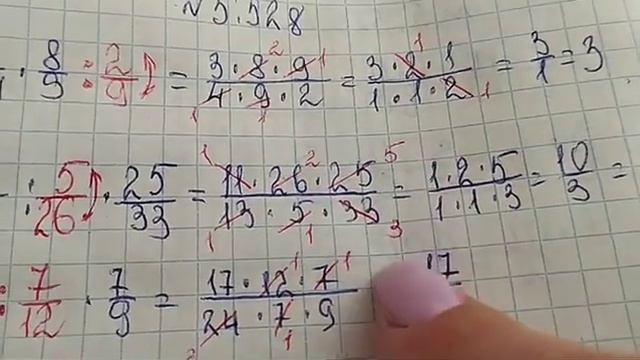 №5.528
· 8/9 : 2/9 = 3·8·9/4·9·2 = 3·2·1/1·1·2 = 3/1 = 3
: 5/26 · 25/33 = 11·26·25/13·5·33 = 1·2·5/1·1·3 = 10/3 =
: 7/12 · 7/9 = 17·12·7/24·7·9 17